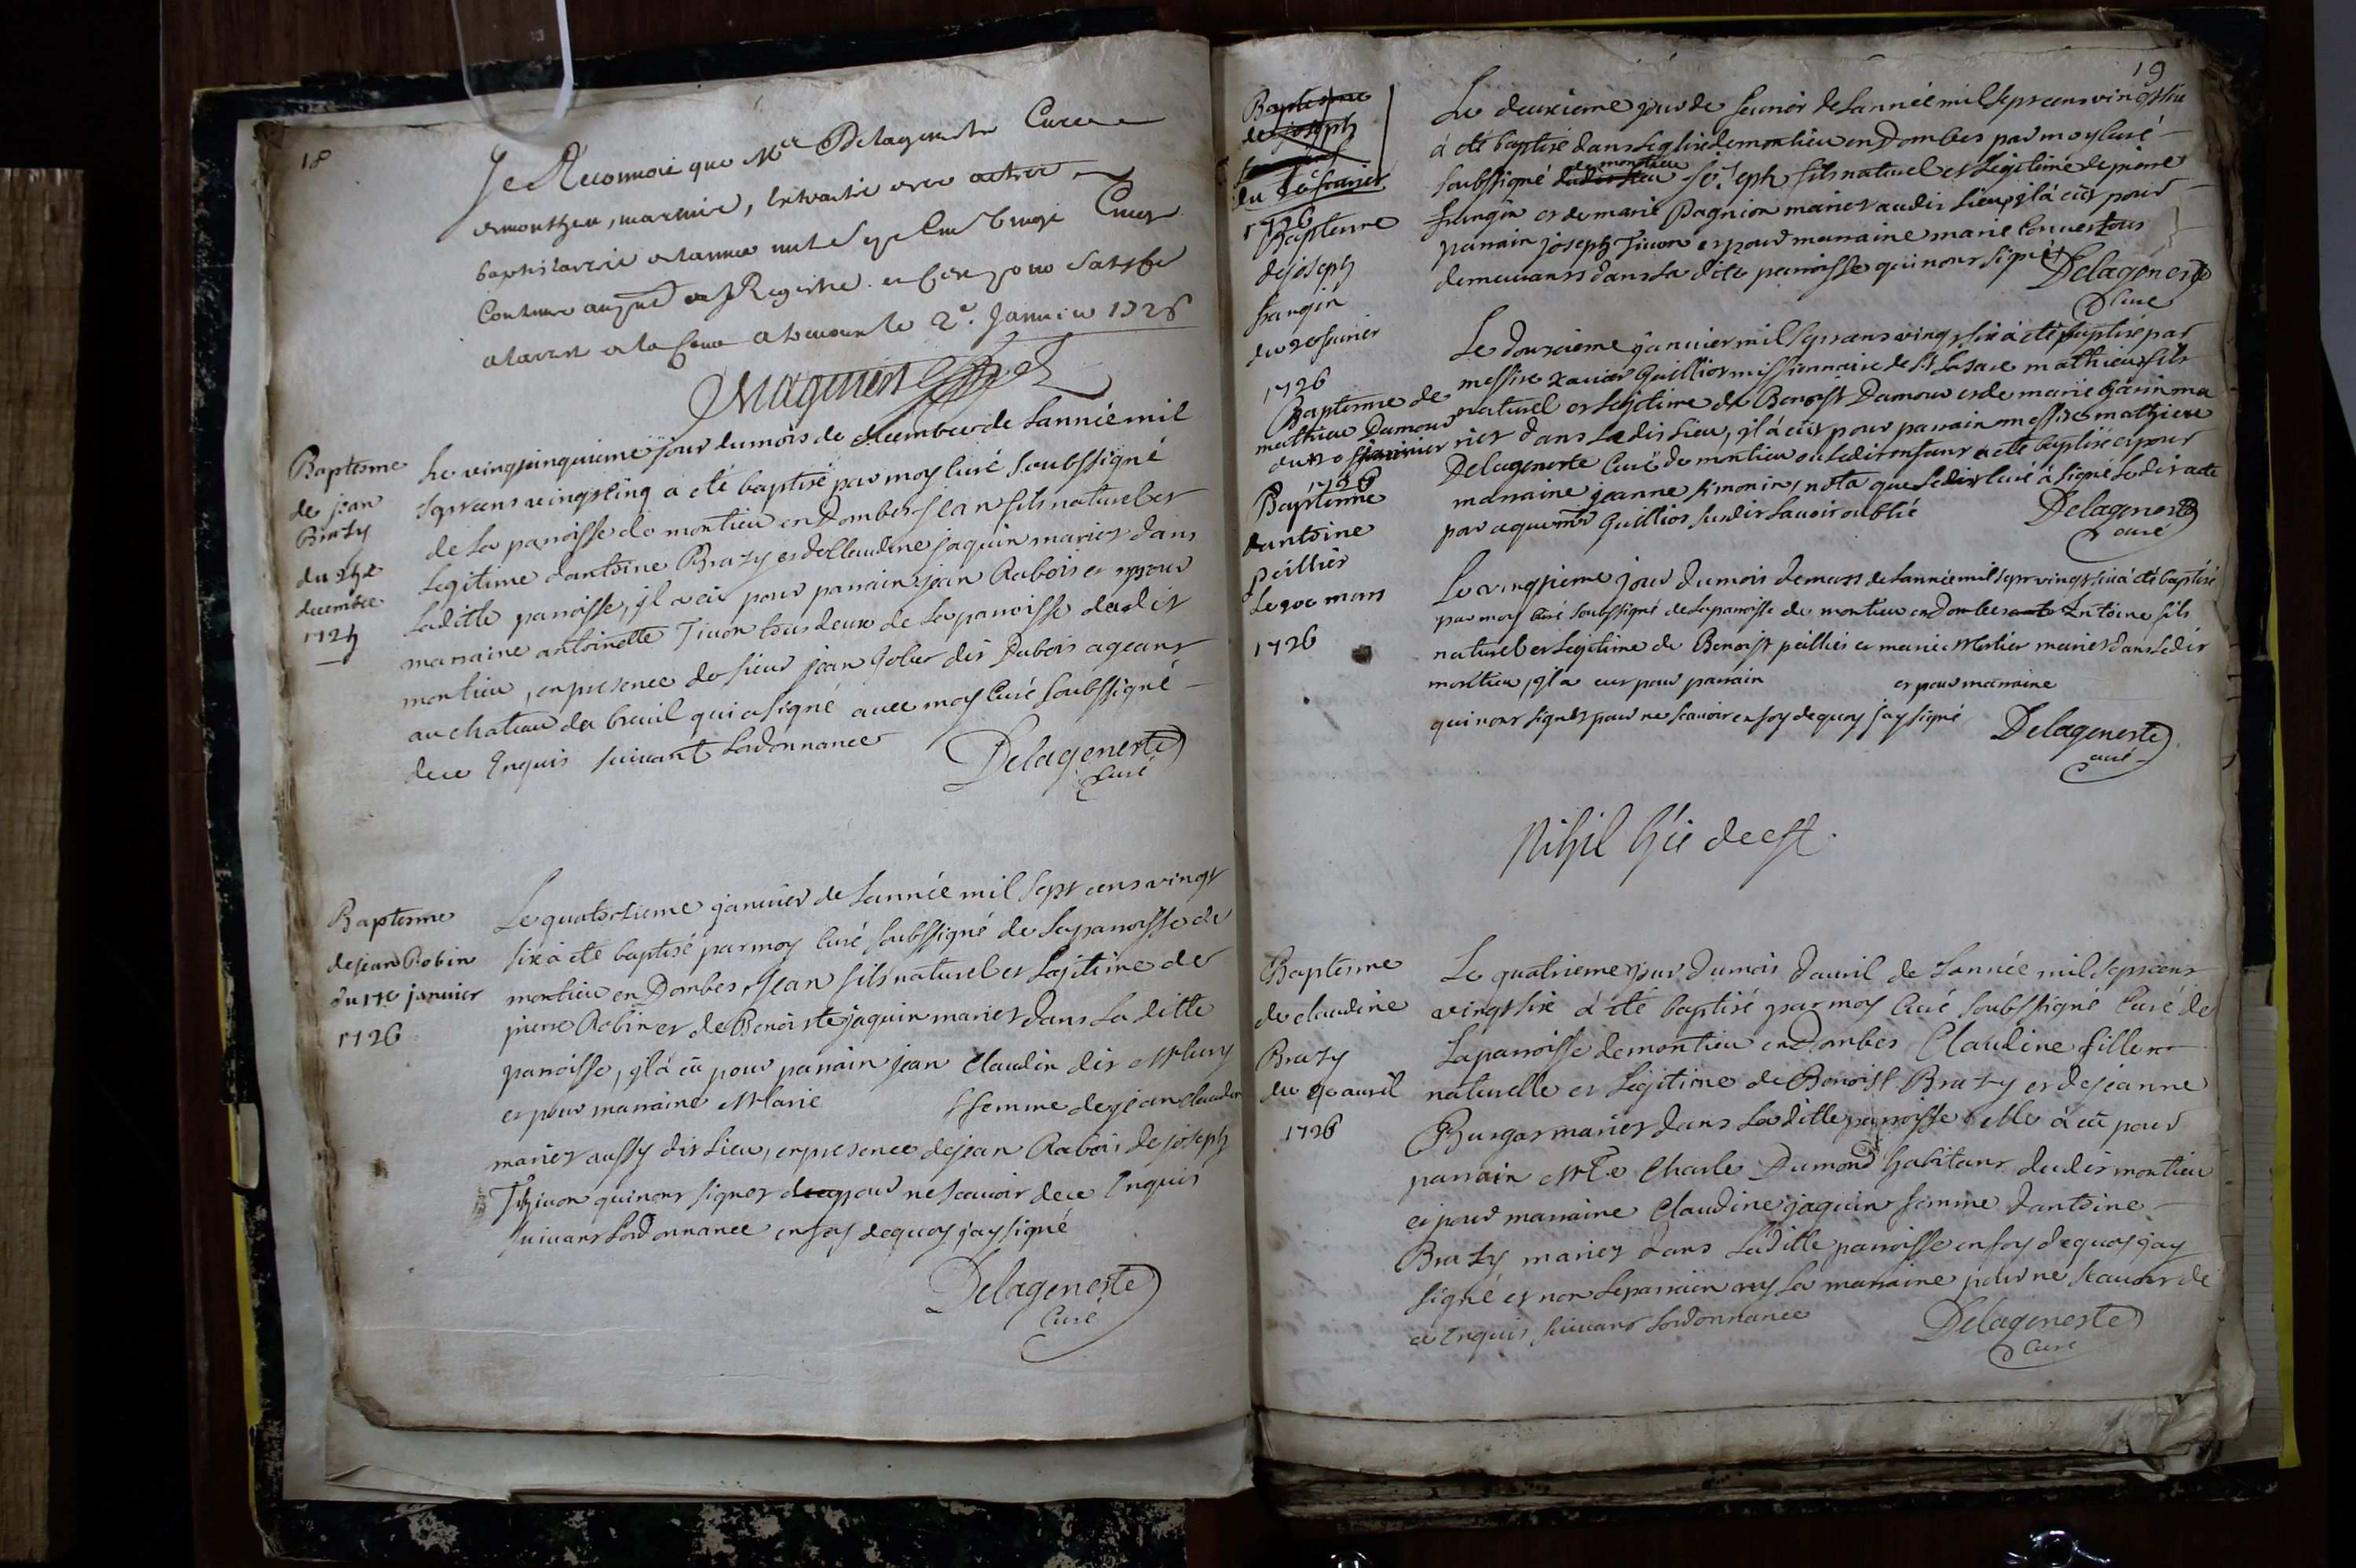 18
Je Reconnoie que Mre Delageneste Curé
de montheu, m'a remis, l'extraict des actes
baptistaires de l'année mil sept cent vingt Cinq
Contenue au pnt Registre
2e. Janvier 1726
Baptesme
de jean
Brazy
du 25e
decembre
1725
Le vingtcinquieme jour du mois de decembre de Lannéé mil
sept cens vingt cinq a été baptisé par moy curé soubssigné
de La paroisse de montieu en Dombes Jean fils naturel et
Legitime dantoine Brazy et de Claudine jaquin mariez dans
Laditte paroisse, jl a eü pour parrain jean Rabois et pour
marraine antoinette Tivon tous deux de La paroisse dudit
montieu, en presence de sieur jean Golier dit Dubois ageant
au chateau du breuil qui a signé avec moy Curé Soubssigné
de ce Enquis suivant Lordonnance
Delageneste
Curé
Baptesme
de jean Robin
du 14e janvier
1726
Le quatorzieme janvier de Lannéé mil Sept cens vingt
six à été baptisé par moy Curé soubssigné de La paroisse de
montieu en Dombes, Jean fils naturel et Legitime de
pierre Robin et de Benoiste jaquin mariez dans La ditte
paroisse, jl à eü pour parrain jean Claudin dit Mlury
et pour marraine Marie femme de jean Claudin
mariez aussy dit Lieu, en presence de jean Rabois de joseph
Thivon qui nont signez pour ne scavoir de ce Enquis
suivant Lordonnance en foy dequoy jay signé
Delageneste
Curé
19
Baptesme
de joseph
du 2e fevrier
1726
Baptesme
de joseph
frangin
du 2e fevrier
1726
Le deuxieme jour de fevrier de Lannéé mil sept cens vingt six
à été baptisé dans Leglise de montieu en Dombes par moy curé
soubssigné du dit Lieu de montieu Joseph fils naturel et Legitime de pierre
frangin et de marie Pagnion mariez audit Lieu, jl à eüt pour
parrain joseph Tivon et pour marraine marie Convert tous
demeurants dans La dite paroisse qui nont signéz
Delageneste
Curé
Baptesme de
mathieu Damour
du 12e janvier
1726
Le douzieme janvier mil sept cens vingt six à été baptisé par
messire xavier Guilliot missionnaire de St Lasare mathieu fils
naturel et Legitime de Benoist Damour et de marie Garin ma
riez dans Ledit Lieu, jl à eüt pour parrain messire mathieu
Delageneste Curé de montieu ou Ledit enfant a été baptisé et pour
marraine jeanne simonin, nota que Ledit curé à signé Ledit acte
par ce que mr Guilliot susdit Lavoit oublié
Delageneste
curé
Baptesme
dantoine
peillier
Le 20e mars
1726
Le vingtieme jour du mois de mars de Lannéé mil sept vingt six à été baptisé
par moy Curé soubssigné de La paroisse de montieu en Dombes Antoine fils
naturel et Legitime de Benoist peillier et marie Mortier mariez dans Ledit
montieu, jl a eut pour parrain et pour marraine
qui nont signéz pour ne scavoir en foy dequoy jay signé
Delageneste
curé
Nihil hic deest
Baptesme
de claudine
Brazy
du 4e avril
1726
Le quatrieme jour du mois davril de Lannéé mil sept cens
vingt six à été baptisé par moy Curé soubssigné Curé de
La paroisse de montieu en Dombes Claudine fille
naturelle et Legitime de Benoist Brazy et de jeanne
Burgas mariez dans Laditte paroisse elle à eü pour
parrain Mre Charle Dumond habitant dudit montieu
et pour marraine Claudine jaquin femme dantoine
Brazy mariez dans Laditte paroisse en foy dequoy jay
signé et non Le parrain ny La marraine pour ne scavoir de
ce Enquis suivant Lordonnance
Delageneste
Curé